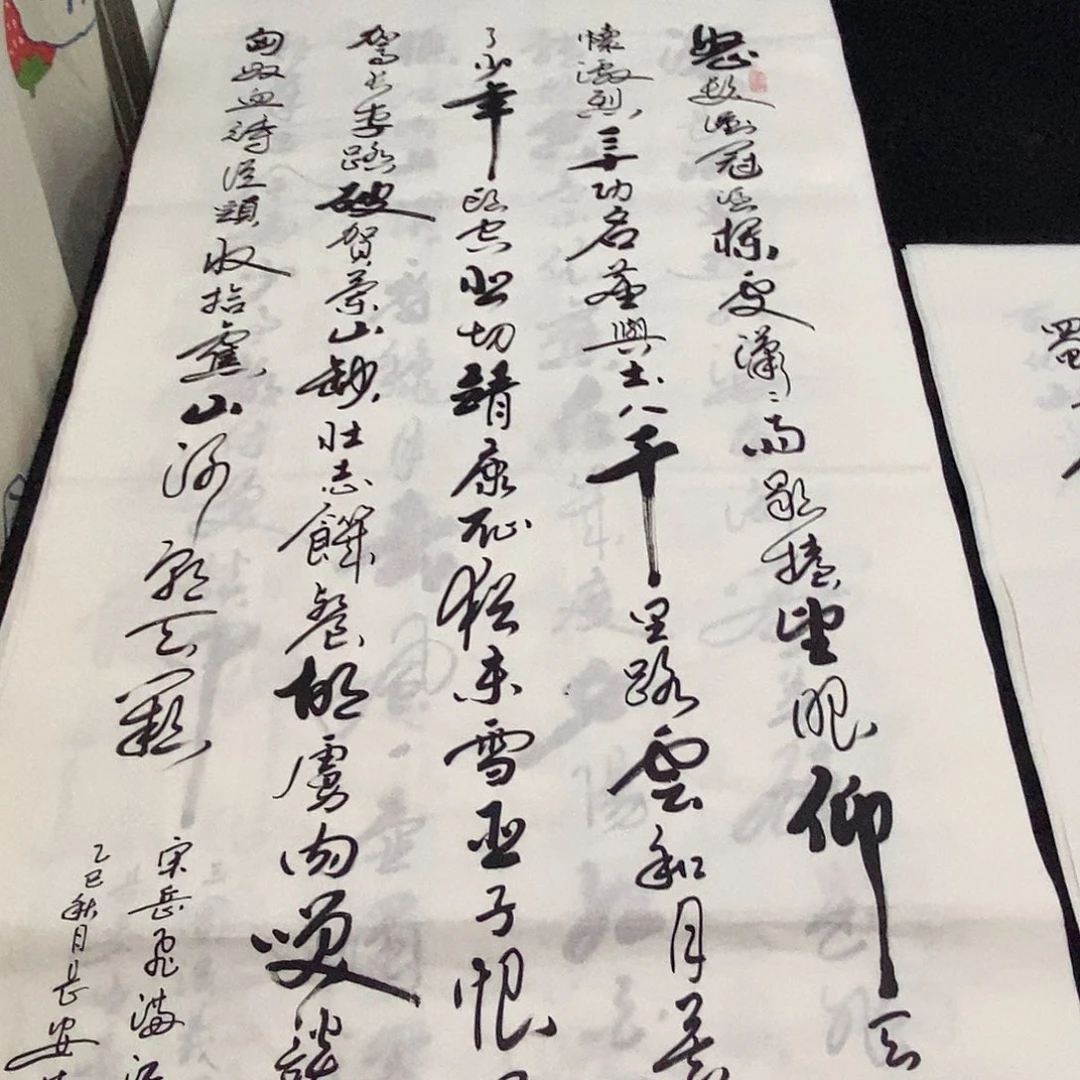 怒髮衝冠憑欄處瀟〻雨歇擡望眼仰天
懷激烈三十功名塵與土八千里路雲和月莫
了少年頭空悲切靖康恥猶未雪臣子恨
駕長車踏破賀蘭山缺壯志饑餐胡虜肉笑談
匈奴血待從頭收拾舊山河朝天闕
宋岳飛滿江
乙巳秋月長安